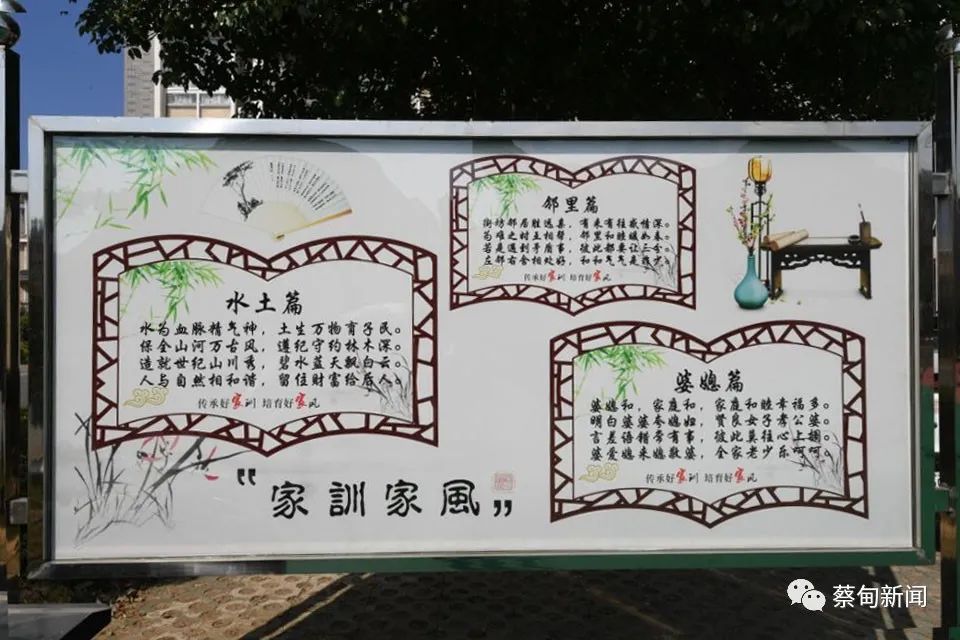 水土篇
水为血脉精气神，土生万物育子民。
保全山河万古风，遵纪守约林木深。
造就世纪山川秀，碧水蓝天飘白云。
人与自然相和谐，留住财富给后人。
传承好家训 培育好家风
邻里篇
街坊邻居胜远亲，有来有往感情深。
为难之时互相帮，邻里和睦暖如春。
若是遇到矛盾事，彼此都要让三分。
左邻右舍相处好，和和气气是
传承好家训 培育好家风
婆媳篇
婆媳和，家庭和，家庭和睦幸福多。
明白婆婆夸媳妇，贤良女子孝公婆。
言差语错常有事，彼此莫往心上搁。
婆爱媳来媳敬婆，全家老少乐呵呵。
传承好家训 培育好家风
“家訓家風”
蔡甸新闻